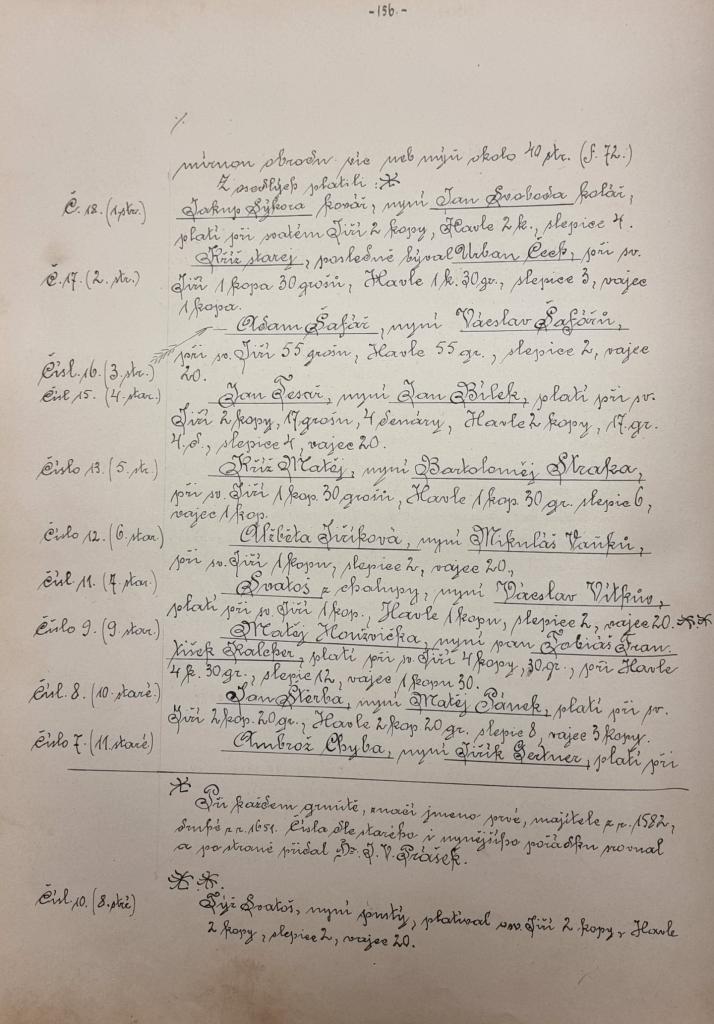 -156.-
./.
mírnou obrodu víc neb nýň okolo 40 str. (f. 72.)
Z sedlých platili: *
Č. 18. (1. str.) Jakup Sýkora kovář, nyní Jan Svoboda kolář,
platí při svatém Jiří 2 kopy, Havle 2 k., slepice 4.
Kříž starej, posledně býval Urban Čech, při sv.
Č. 17. (2. str.) Jiří 1 kopa 30 grošů, Havle 1 k. 30 gr., slepice 3, vajec
1 kopa.
Adam Šafář, nyní Václav Šafářů,
Čísl. 16. (3. str.) při sv. Jiří 55 grošů, Havle 55 gr., slepice 2, vajec
20.
Čísl 15. (4. star.) Jan Tesař, nyní Jan Bílek, platí při sv.
Jiří 2 kopy, 17 grošů, 4 denáry, Havle 2 kopy, 17. gr.
4. d., slepice 4, vajec 20.
Číslo 13. (5. str.) Kříž Matěj, nyní Bartoloměj Straka,
při sv. Jiří 1 kop. 30 grošů, Havle 1 kop. 30 gr. slepic 6,
vajec 1 kop.
Číslo 12. (6. star) Alžběta Jiříková, nyní Mikuláš Vaňků,
při sv. Jiří 1 kopu, slepice 2, vajec 20.,
Čísl. 11. (7. star.) Svatoš z chalupy, nyní Václav Vítkův,
platí při sv. Jiří 1 kop., Havle 1 kopu, slepice 2, vajec 20. **
Číslo 9. (9. star.) Matěj Houžvička, nyní pan Tobiáš Fran.
tišek Kalcher, platí při sv. Jiří 4 kopy, 30. gr., při Havle
4 k. 30 gr., slepic 12, vajec 1 kopu 30.
Čísl. 8. (10. staré.) Jan Štěrba, nyní Matěj Pánek, platí při sv.
Jiří 2 kop. 20 gr., Havle 2 kop. 20 gr. slepic 8, vajec 3 kopy.
Číslo 7. (11. staré) Ambrož Chyba, nyní Jiřík, platí při
* Při každém gruntě, značí jmeno prvé, majitele z r. 1582,
druhé z r. 1651. Čísla dle starého i nynějšího pořádku srovnal
a po straně přidal Dr. J. V. Prášek.
**.
Čísl. 10. (8. str.) Týž Svatoš, nyní pustý, platival o sv. Jiří 2 kopy, Havle
2 kopy, slepice 2, vajec 20.